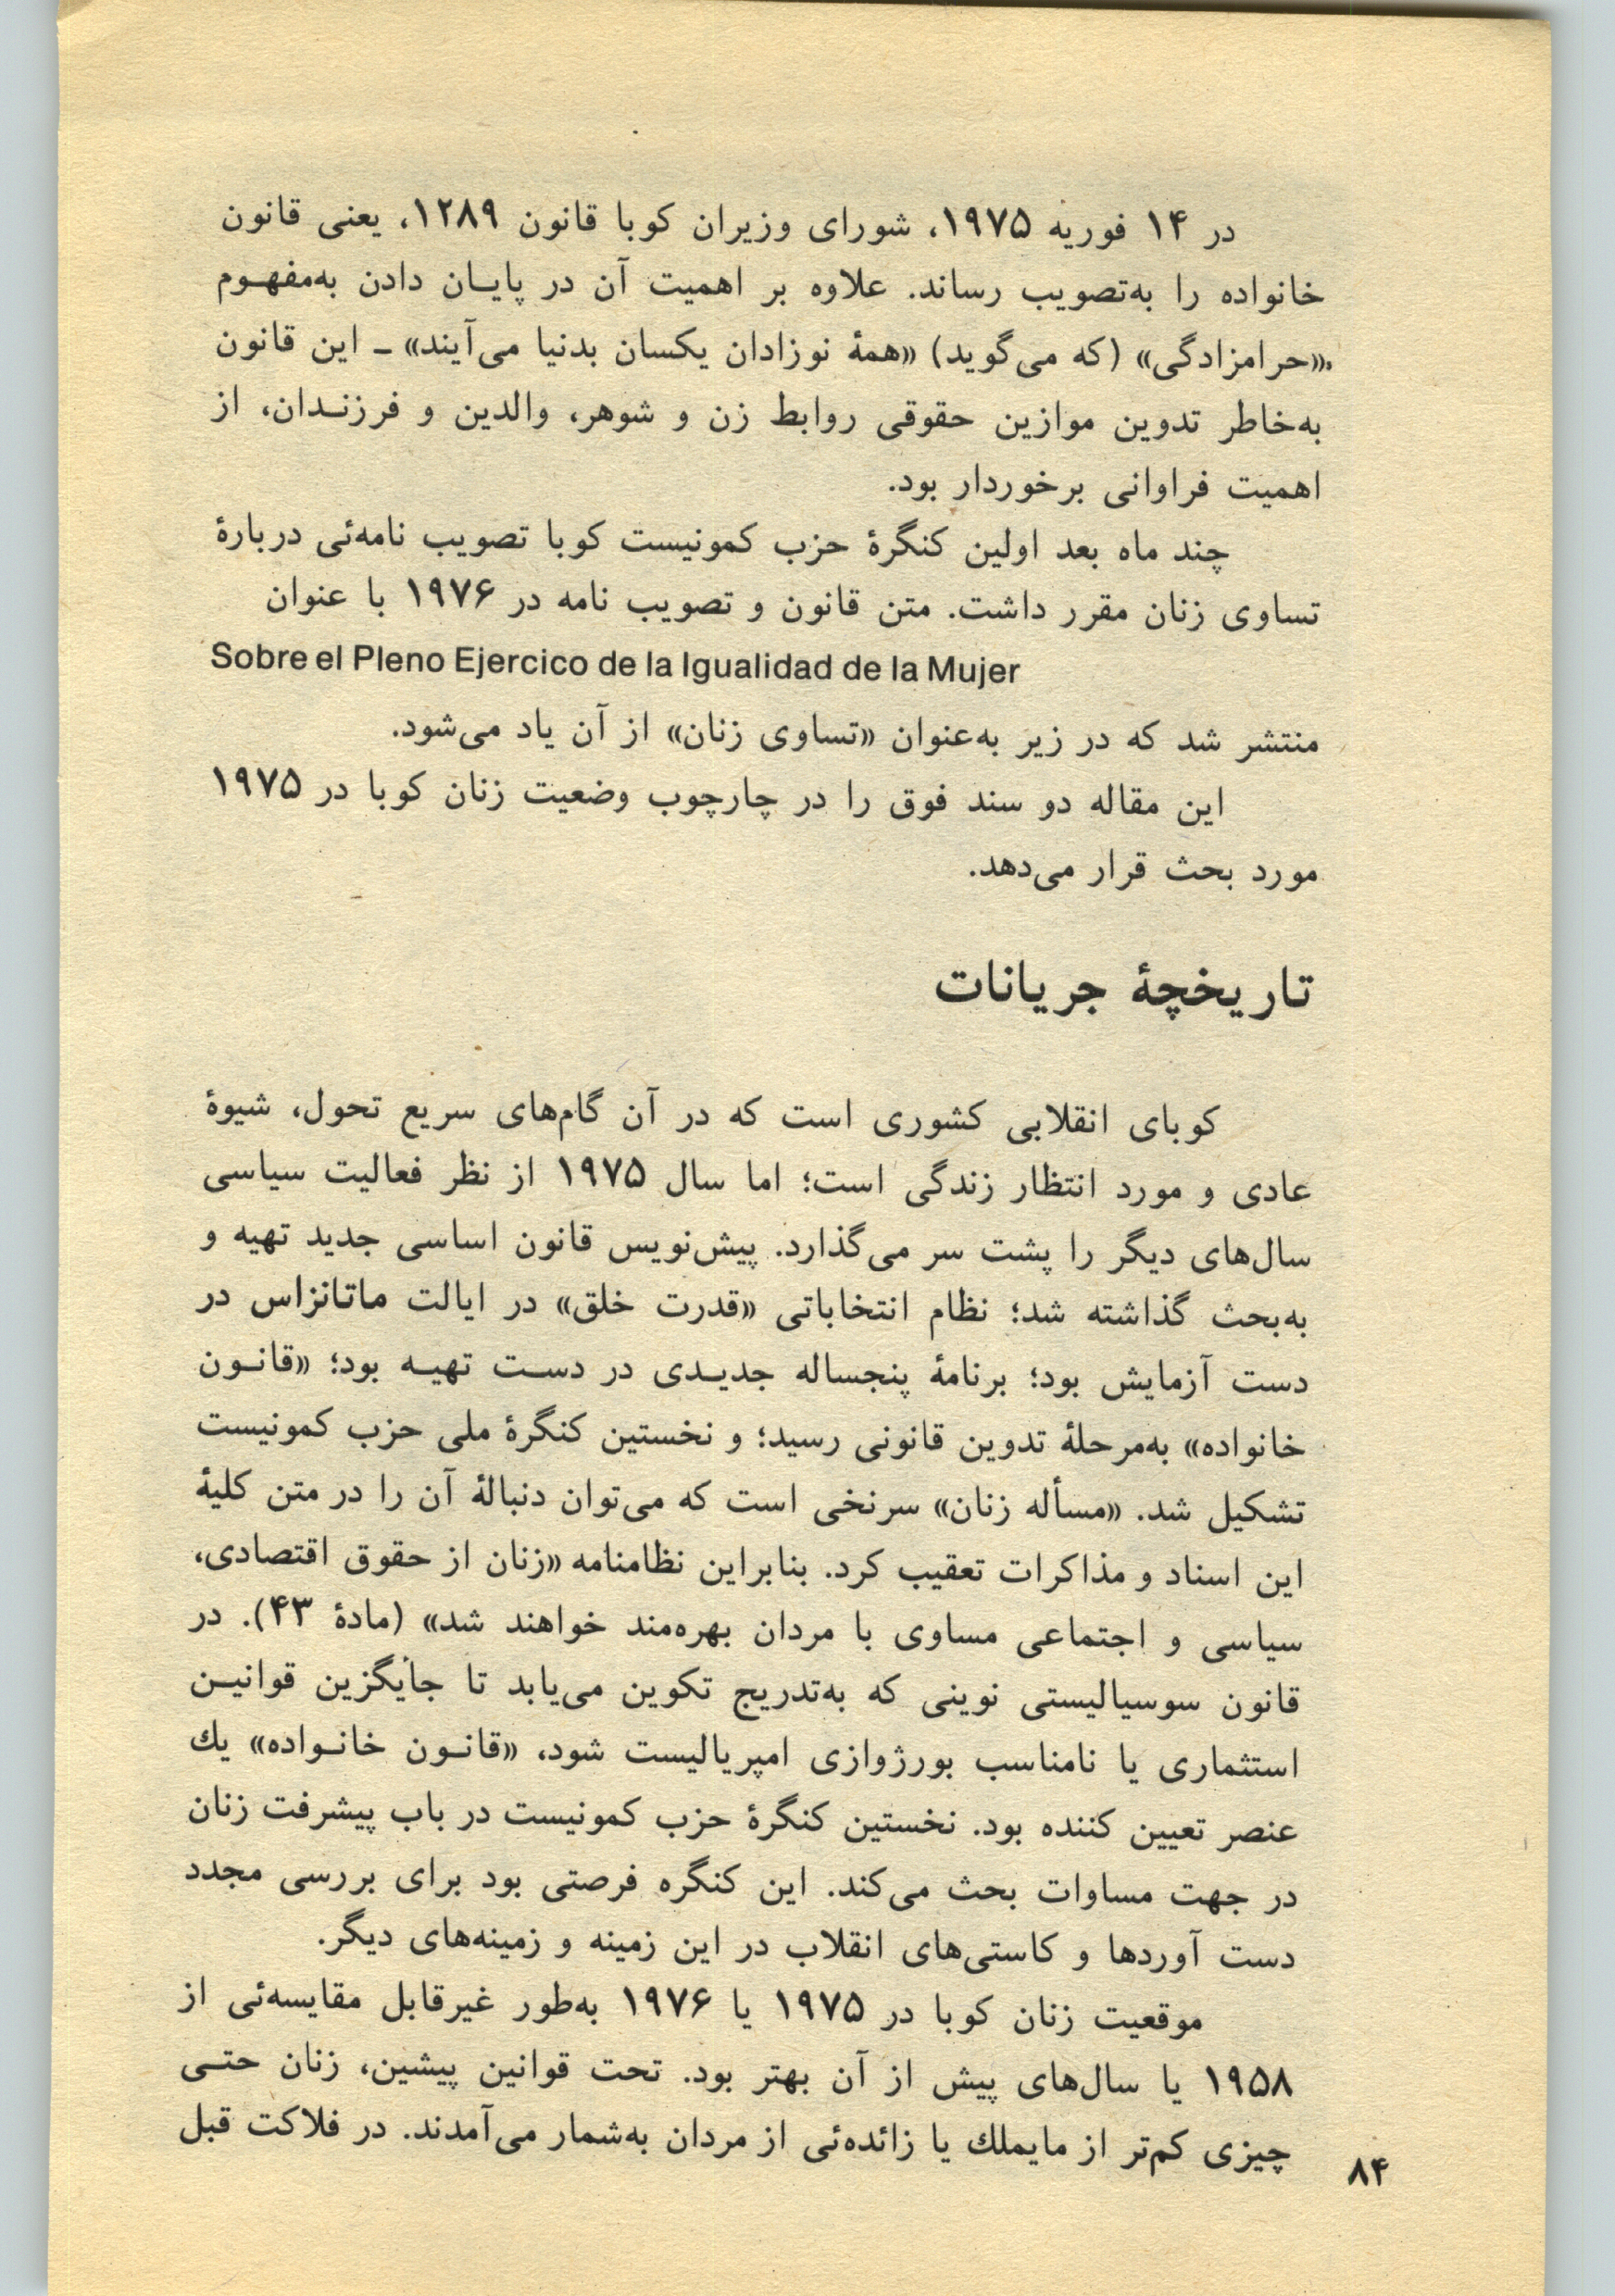 در ۱۴ فوریه ۱۹۷۵، شورای وزیران کوبا قانون ۱۲۸۹، یعنی قانون
خانواده را به‌تصویب رساند. علاوه بر اهمیت آن در پایـان دادن به‌مفهـوم
«حرامزادگی» (که می‌گوید) «همهٔ نوزادان یکسان بدنیا می‌آیند» ـ این قانون
به‌خاطر تدوین موازین حقوقی روابط زن و شوهر، والدین و فرزنـدان، از
اهمیت فراوانی برخوردار بود.
چند ماه بعد اولین کنگرهٔ حزب کمونیست کوبا تصویب نامه‌ئی دربارهٔ
تساوی زنان مقرر داشت. متن قانون و تصویب نامه در ۱۹۷۶ با عنوان
Sobre el Pleno Ejercico de la Igualidad de la Mujer
منتشر شد که در زیر به‌عنوان «تساوی زنان» از آن یاد می‌شود.
این مقاله دو سند فوق را در چارچوب وضعیت زنان کوبا در ۱۹۷۵
مورد بحث قرار می‌دهد.
تاریخچهٔ جریانات
کوبای انقلابی کشوری است که در آن گام‌های سریع تحول، شیوهٔ
عادی و مورد انتظار زندگی است؛ اما سال ۱۹۷۵ از نظر فعالیت سیاسی
سال‌های دیگر را پشت سر می‌گذارد. پیش‌نویس قانون اساسی جدید تهیه و
به‌بحث گذاشته شد؛ نظام انتخاباتی «قدرت خلق» در ایالت ماتانزاس در
دست آزمایش بود؛ برنامهٔ پنجساله جدیـدی در دسـت تهیـه بود؛ «قانـون
خانواده» به‌مرحلهٔ تدوین قانونی رسید؛ و نخستین کنگرهٔ ملی حزب کمونیست
تشکیل شد. «مسأله زنان» سرنخی است که می‌توان دنبالهٔ آن را در متن کلیهٔ
این اسناد و مذاکرات تعقیب کرد. بنابراین نظامنامه «زنان از حقوق اقتصادی،
سیاسی و اجتماعی مساوی با مردان بهره‌مند خواهند شد» (مادهٔ ۴۳). در
قانون سوسیالیستی نوینی که به‌تدریج تکوین می‌یابد تا جایگزین قوانیـن
استثماری یا نامناسب بورژوازی امپریالیست شود، «قانـون خانـواده» یك
عنصر تعیین کننده بود. نخستین کنگرهٔ حزب کمونیست در باب پیشرفت زنان
در جهت مساوات بحث می‌کند. این کنگره فرصتی بود برای بررسی مجدد
دست آوردها و کاستی‌های انقلاب در این زمینه و زمینه‌های دیگر.
موقعیت زنان کوبا در ۱۹۷۵ یا ۱۹۷۶ به‌طور غیرقابل مقایسه‌ئی از
۱۹۵۸ یا سال‌های پیش از آن بهتر بود. تحت قوانین پیشین، زنان حتـی
چیزی کم‌تر از مایملك یا زائده‌ئی از مردان به‌شمار می‌آمدند. در فلاکت قبل
۸۴